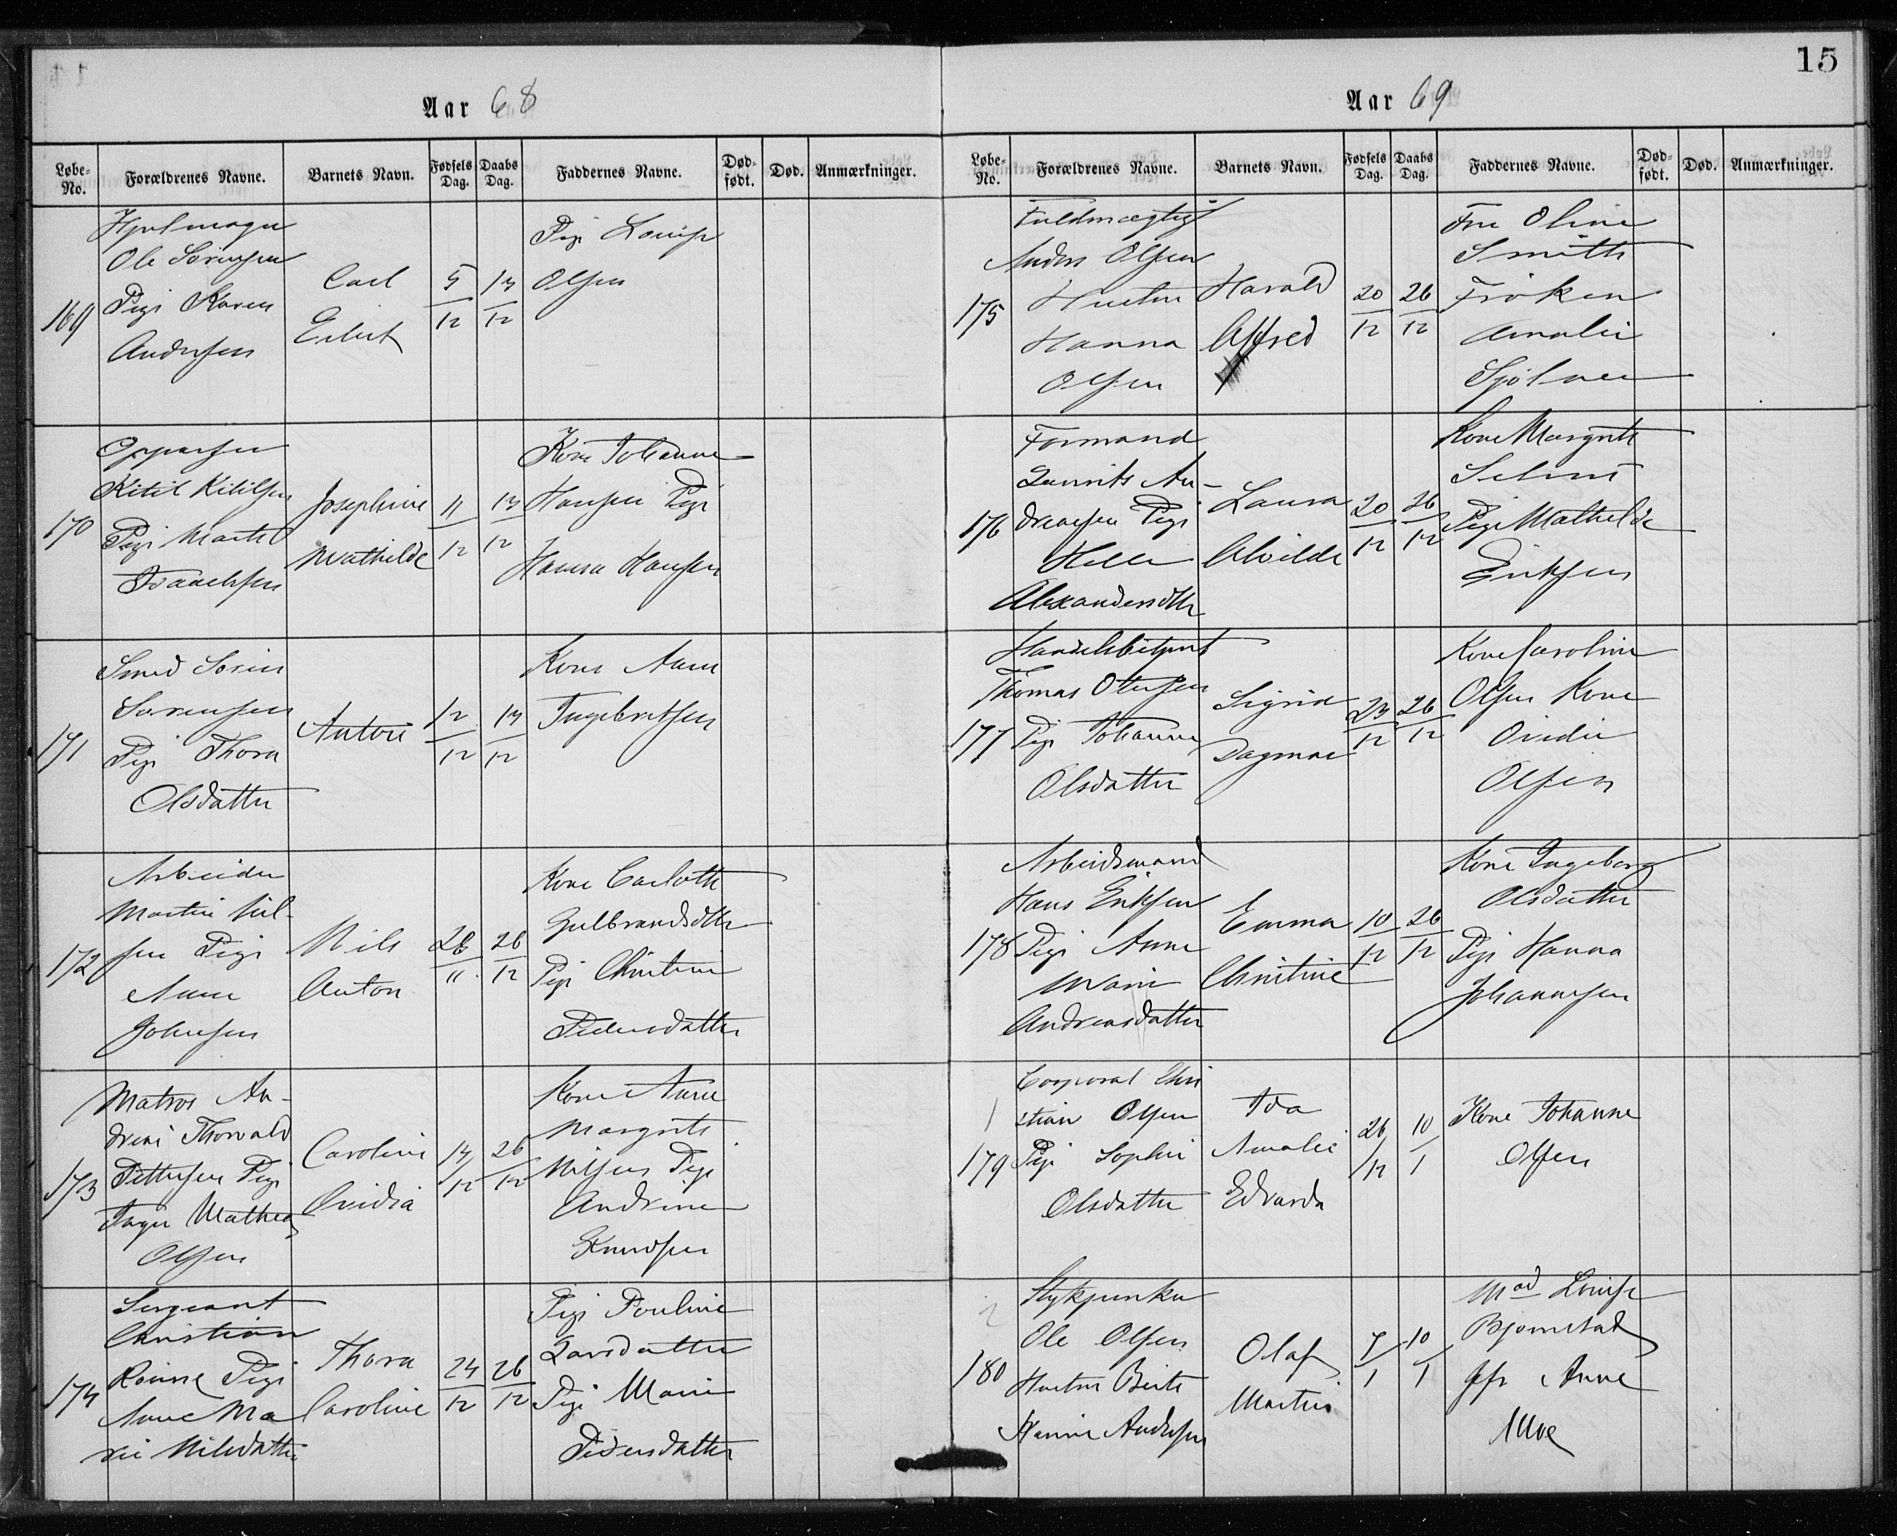 15
Aar 68
Løbe-No. Forældrenes Navne. Barnets Navn. Fødsels Dag. Daabs Dag. Faddernes Navne. Død-født. Død. Anmærkninger.
169
Hjulmager
Ole Sørensen
Pige Karen
Andersen
Carl
5/12
13/12
Pige Louise
Olsen
170
Kitil Kitilsen
Pige Marthe
Isaachsen
Josephine
Mathilde
11/12
13/12
Kone Johanne
Hansen Pige
Hanna Hansen
171
Smed Sørin
Sørensen
Pige Thora
Olsdatter
Anton
12/12
13/12
Kone Anne
Ingebretsen
172
Arbeider
Martin Nil-
sen Pige
Anne
Johnsen
Nils
Anton
26/11
26/12
Kone Carlotte
Gulbrandsdtr
Pige Christine
Pedersdatter
173
Matros An-
dreas Thorvald
Pettersen Pige
Inger Mathea
Olsen
Caroline
Ovidia
14/12
26/12
Kone Anne
Margrete
Nilsen Pige
Andrine
Knudsen
174
Sergeant
Christian
Rønne Pige
Anne Ma
rie Nilsdatter
Thora
Caroline
24/12
26/12
Pige Pouline
Larsdatter
Pige Marie
Pedersdatter
Aar 69
Løbe-No. Forældrenes Navne. Barnets Navn. Fødsels Dag. Daabs Dag. Faddernes Navne. Død-født. Død. Anmærkninger.
175
Fuldmægtig
Anders Olsen
Hustru
Hanna
Olsen
Harald
Alfred
20/12
26/12
Fru Oline
Smith
Frøken
Amalie
176
Formand
Laurits An-
dreasen Pige
Helle
Alexandersdtr
Laura
Alvilde
20/12
26/12
Kone Margrete
Pige Mathilde
Eriksen
177
Handelsbetjent
Thomas Olufsen
Pige Johanne
Olsdatter
Sigrid
Dagmar
23/12
26/12
Kone Caroline
Olsen Kone
Ovidie
Olsen
178
Arbeidsmand
Hans Eriksen
Pige Anne
Marie
Andreasdatter
Emma
Christine
10/12
26/12
Kone Ingeborg
Olsdatter
Pige Hanna
Johannesen
1
179
Corporal Chri
stian Olsen
Pige Sophie
Olsdatter
Ida
Amalie
Edvarda
26/12
10/1
Kone Johanne
Olsen
2
180
Stykjunker
Ole Olsen
Hustru Berte
Hanine Andersen
Olaf
Martin
7/1
10/1
Mad Louise
Bjørnstad
Jfr Anne
Moe